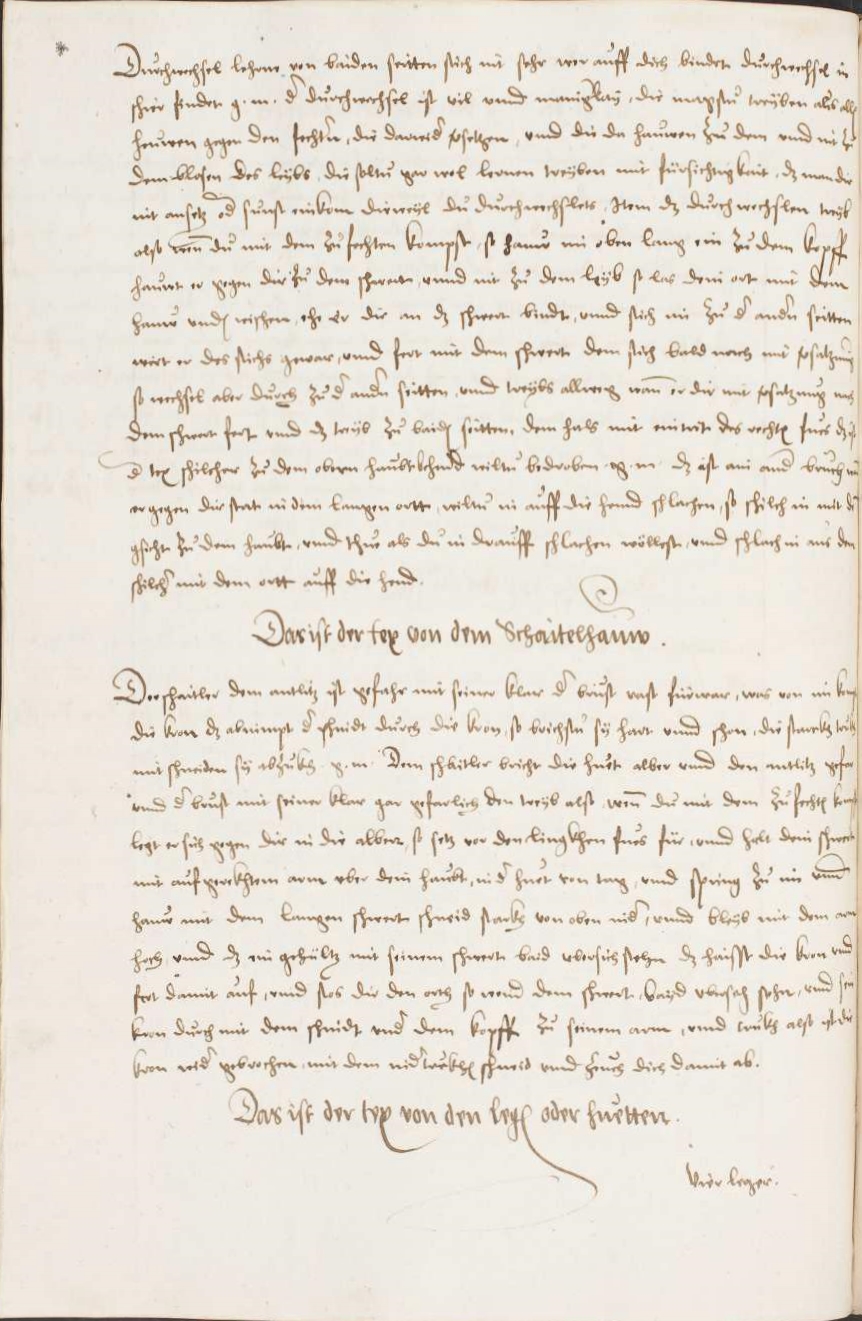 Durchwechsel lehrne von baiden seitten stich mit sehr wer auff dich bindet durchwechsel in
schier findet g. m. d durchwechsel ist vil vnnd manigerlay, die magstu treyben aus allen
hewen gegen den fechtrn, die darwider setzen, vnnd die da hauwen zu dem vnnd nit zu
dem blosen des leybs, die soltu gar wol lernen treyben mit fürsichtigkait, dz man dir
nit ansetz od sunst einkom dieweyl du durchwechslets, Item dz durchwechslen treyb
also wen du mit dem zufechten kompst, so hauw im oben lang ein zu dem kopff
hauwt er gegen dir zu dem schwert, vnnd nit zu dem leyb so las dein ort mit dem
hauw vnd wischen, ehe er dir an dz schwert bindt, vnnd stich im zu d andrn seitten
wirt er des stichs gewar, vnnd fert mit dem schwert dem stich bald nach mit satzung
so wechsel aber durch zu d andrn seitten, vnnd treybs allweg wan er dir mit satzung nach
dem schwert fert vnnd dz treyb zu baid seitten, dem hals mit eintrit des recht fues
d tex schilcher zu dem obern haubt hend wiltu bedroben g. m. dz ist ain and bruch
er gegen dir stert in dem langen ortt, wiltu in auff die hend schlachen, so schilch in mit dem
gsicht zu dem haubt, vnnd thue als du in drauff schlachen wöllest, vnnd schlach in aus dem
schilcher mit dem ortt auff die hend.
Das ist der tex von dem Schaitelhauw.
Der schaitler dem antlitz ist gefahr mit seiner klar d brust vast fürwar, was von im kompt
die kron dz abnimpt d schnidt durch die kron, so brichstu sy hart vnnd schon, die straich truckh
mit schneiden sy abzuckh. g. m. Dem schaitler bricht die huet alber vnnd den antlitz gefar
vnnd d brust mit seiner klar gar gefarlich den treyb also, wen du mit dem zufecht kompst
legt er sich gegen dir in die alber, so setz vor den lingkhen fues für, vnnd halt dein schwert
mit aufgerekhtem arm vber dein haubt, in d huet von tag, vnnd spring zu im vnnd
hauw mit dem langen schwert schneid starkh von oben nid, vnnd bleyb mit dem arm
hoch, vnnd dz im gehültz mit seinem schwert baid vbersich stehn dz haisst die kron vnd
fert damit auf, vnnd stos dir den orth so wend dem schwert, vnnd
kron durch mit dem schnidt vnd dem kopff zu seinem arm, vnnd trukh also ist die
kron wid gebrochen, mit dem nid trukh schneid vnnd zeuch dich damit ab.
Das ist der tex von den leger oder huetten.
Vier leger.